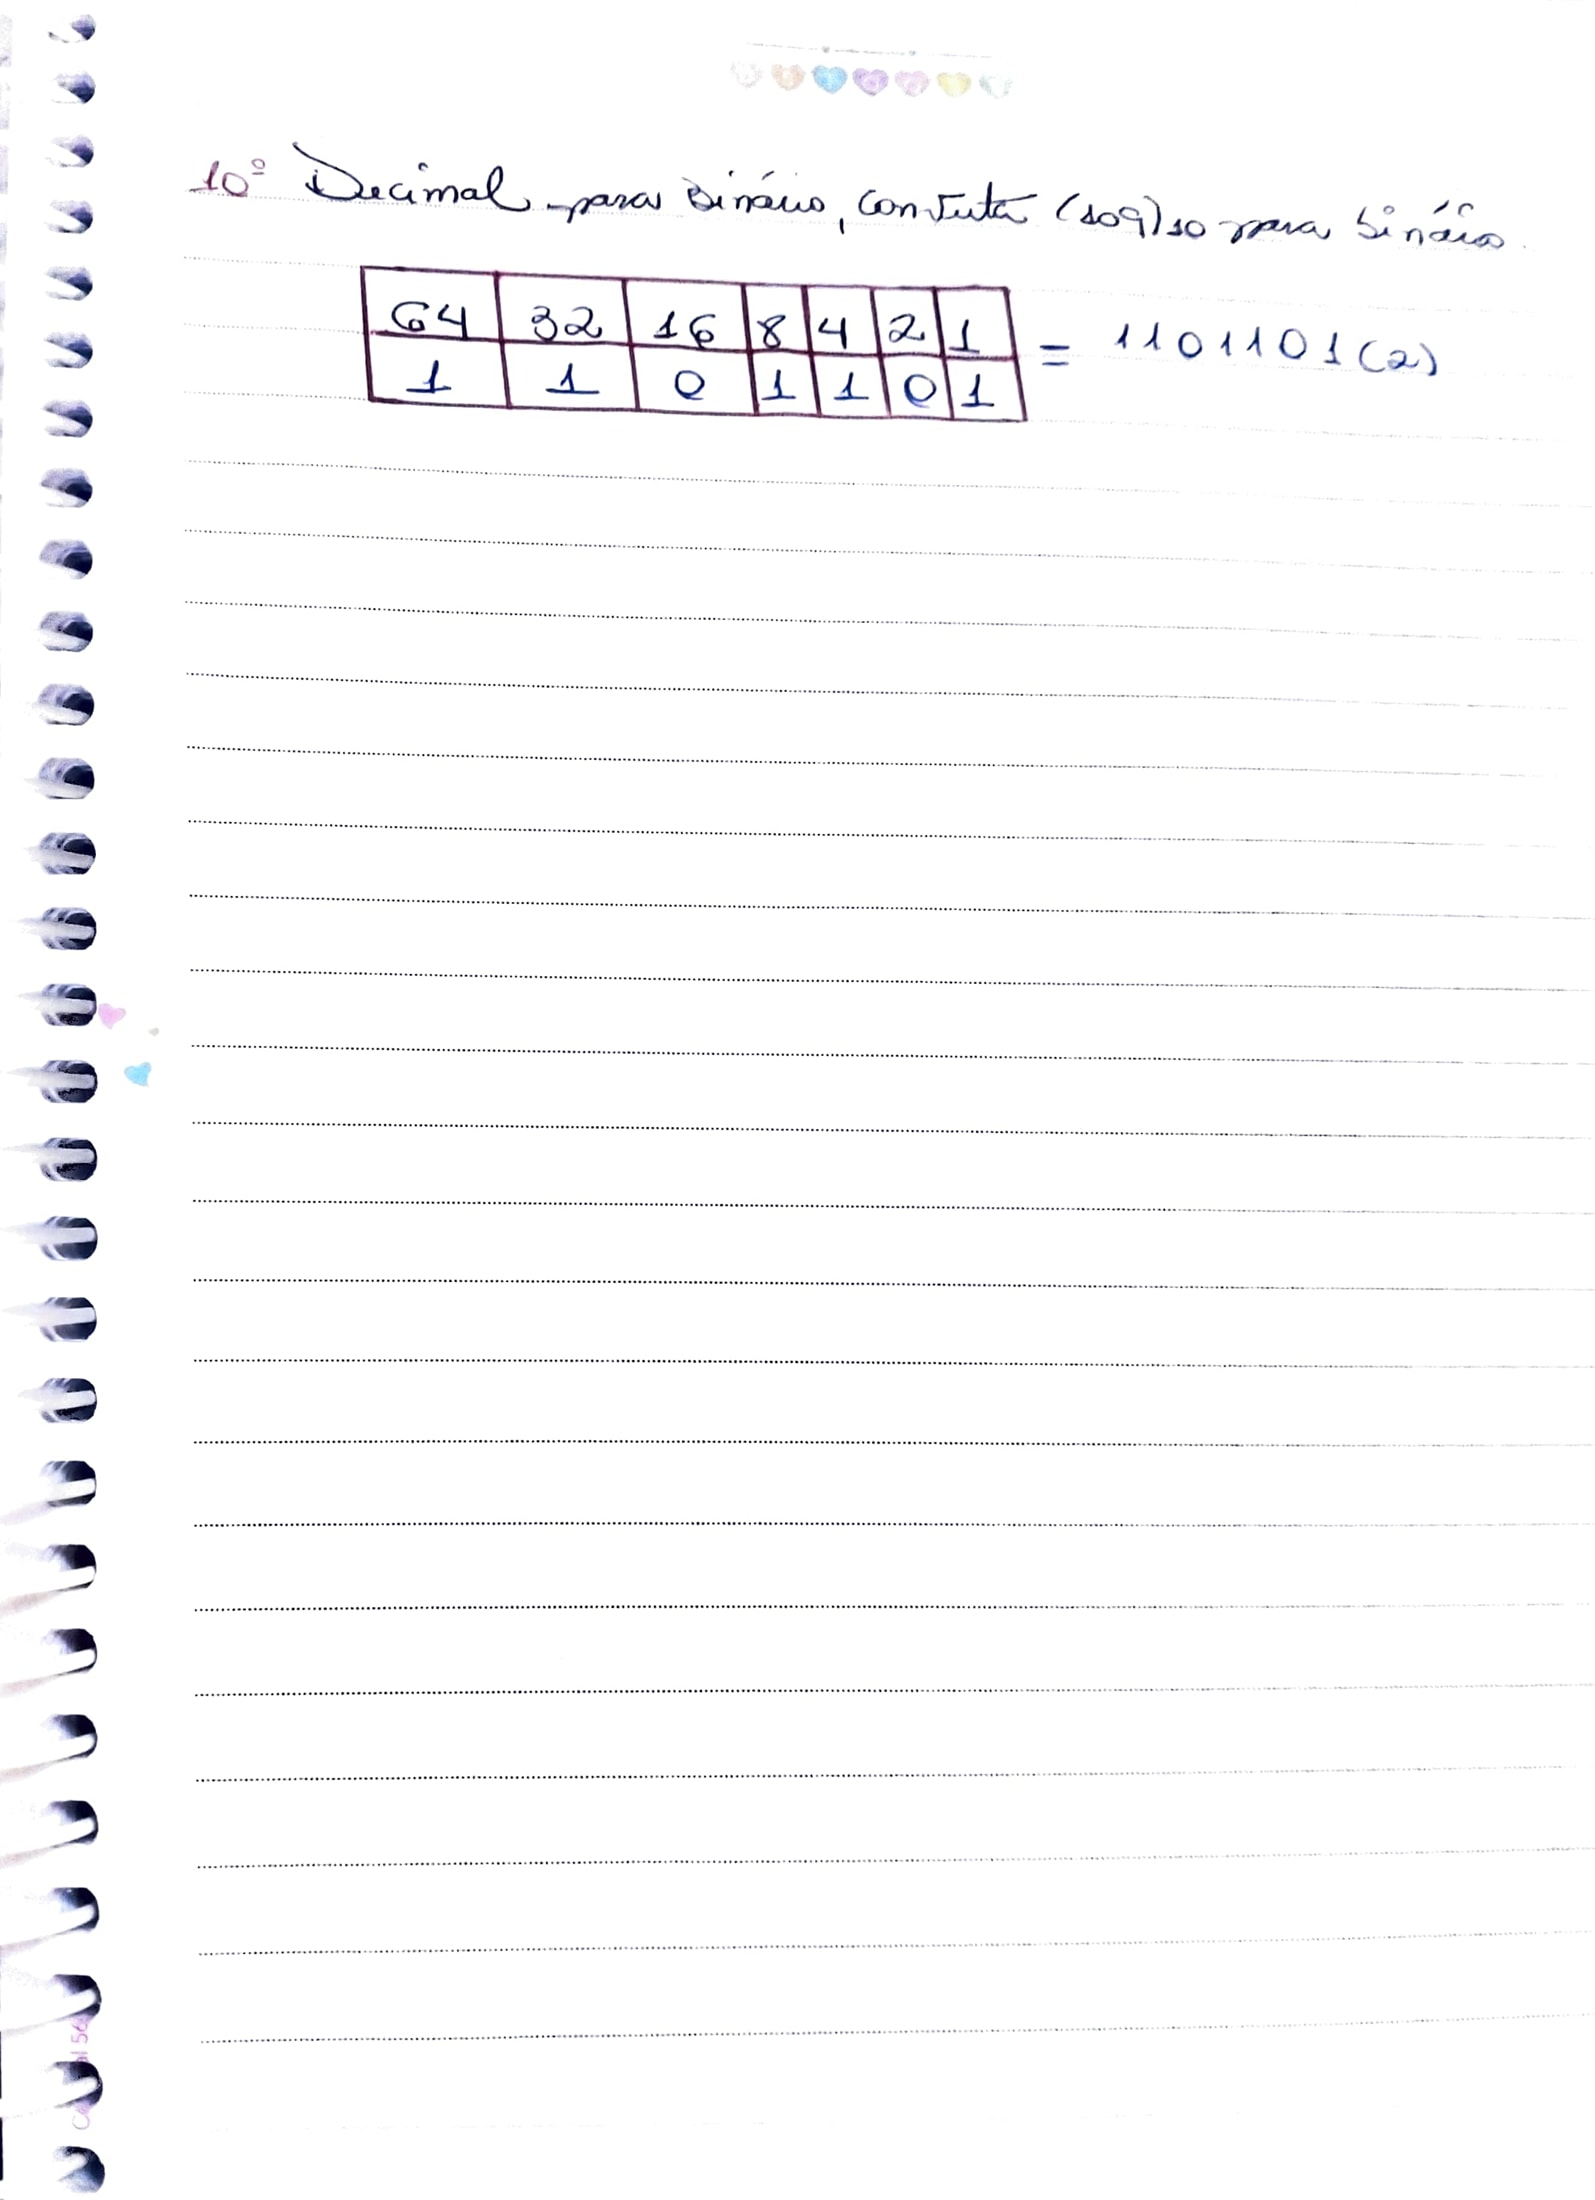 10º Decimal para Binário, converta (109)10 para binário.
64 32 16 8 4 2 1 = 1101101(2)
1 1 0 1 1 0 1